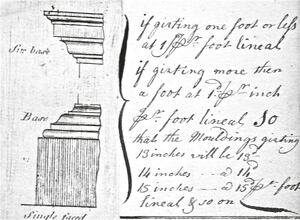 if girting one foot or less
Sur base
at 1/ pr. foot lineal
if girting more then
a foot at 1d. pr. inch
Base
pr. foot lineal So
that the Mouldings girting
13 inches will be 13d.
14 inches - a 14
15 inches - a 15 pr. foot
lineal & so on
Single faced